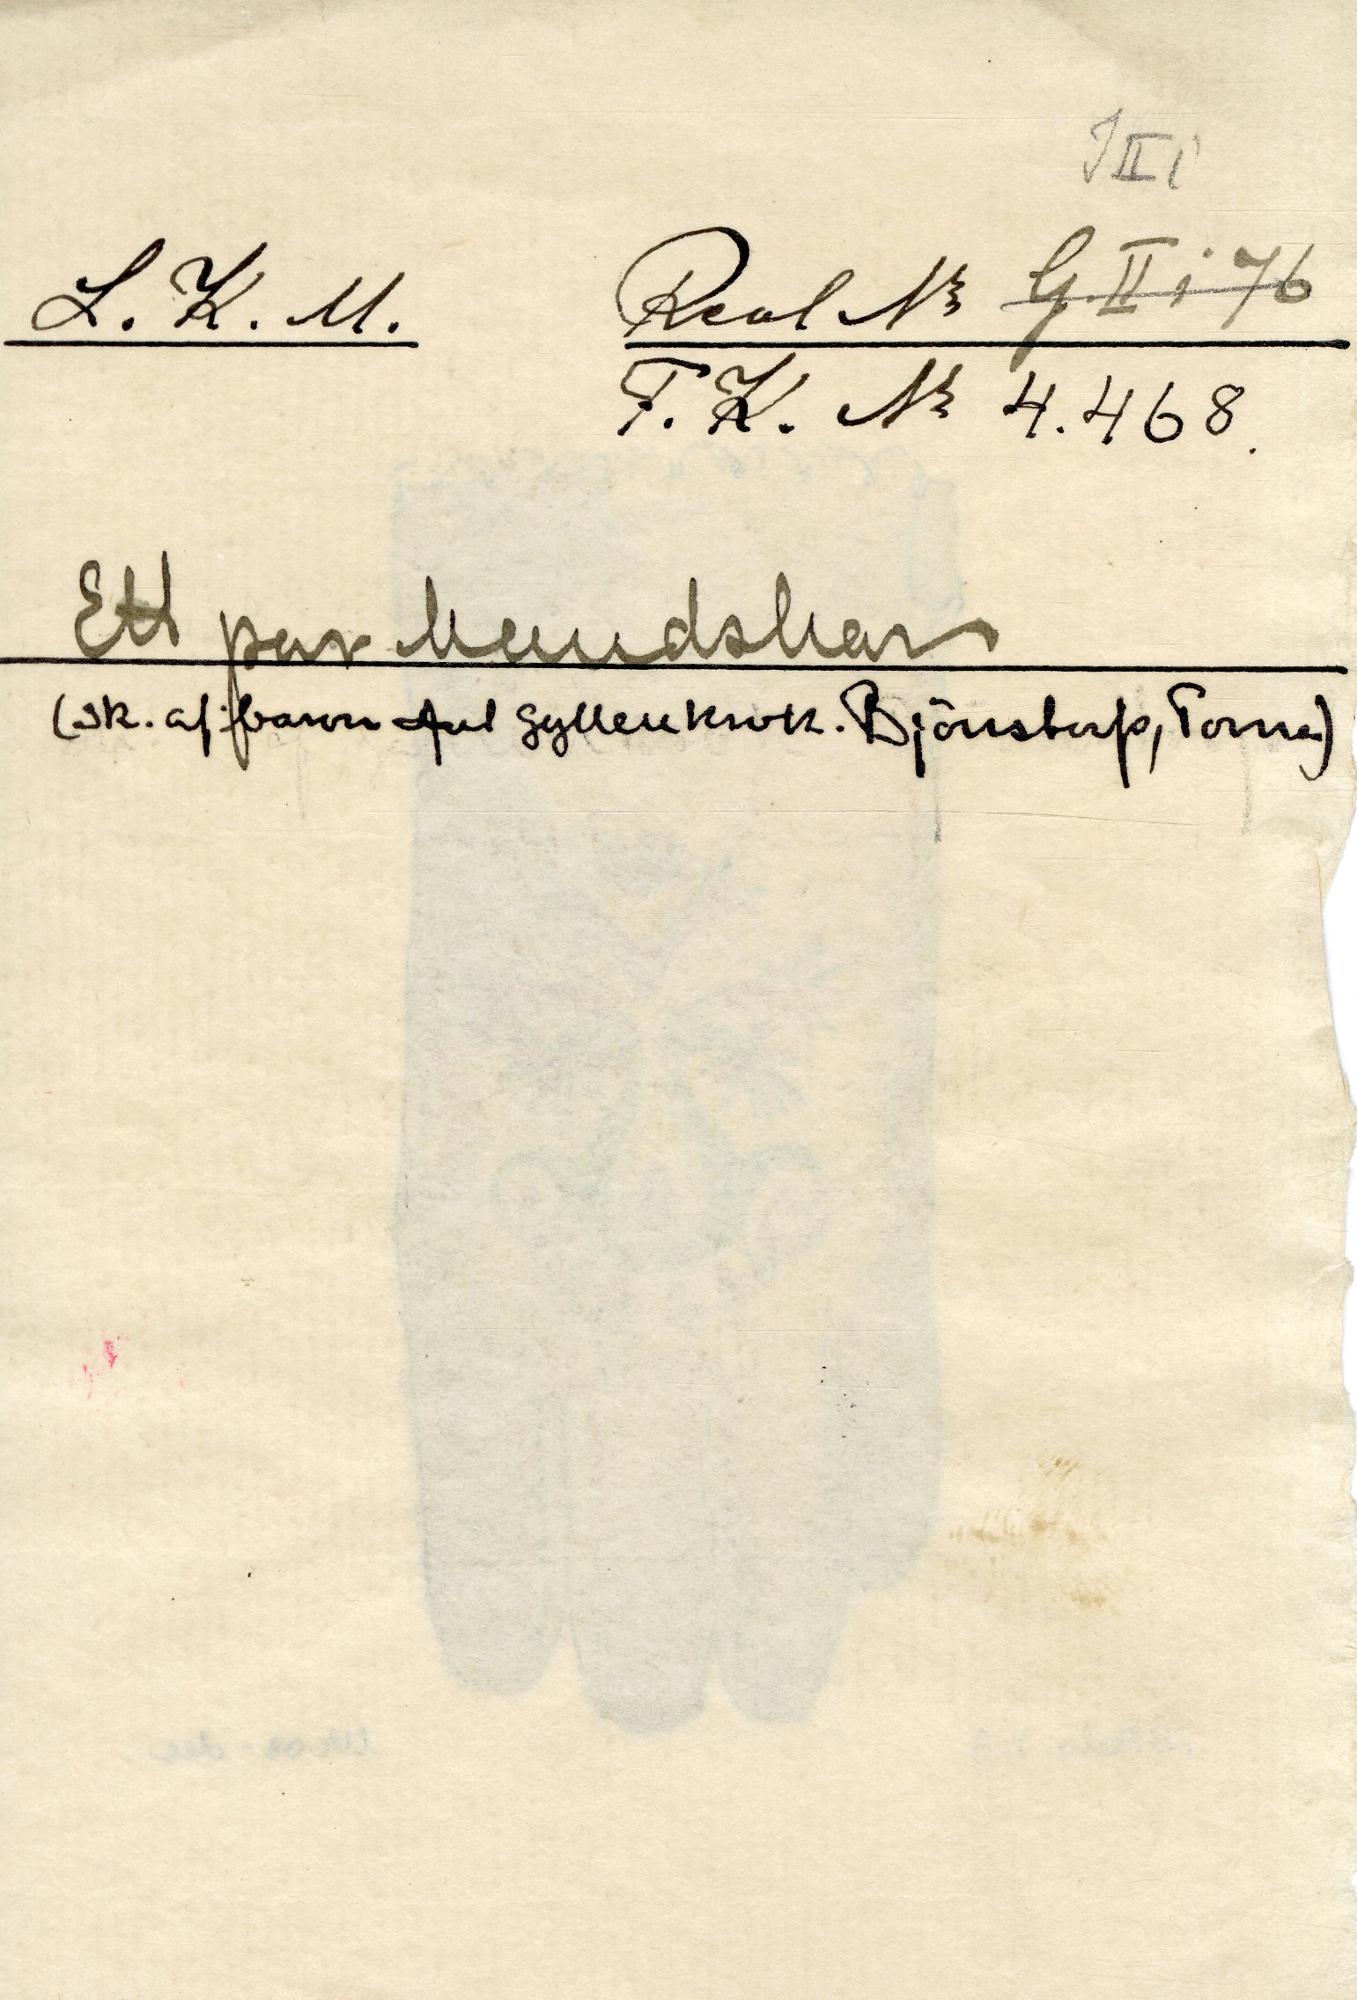 J II i
L. K. M. Real No G. II i 76
F. K. No 4.468.
Ett par handskar
(sk. af baron Axel Gyllenkrok. Björnstorp, Torna)